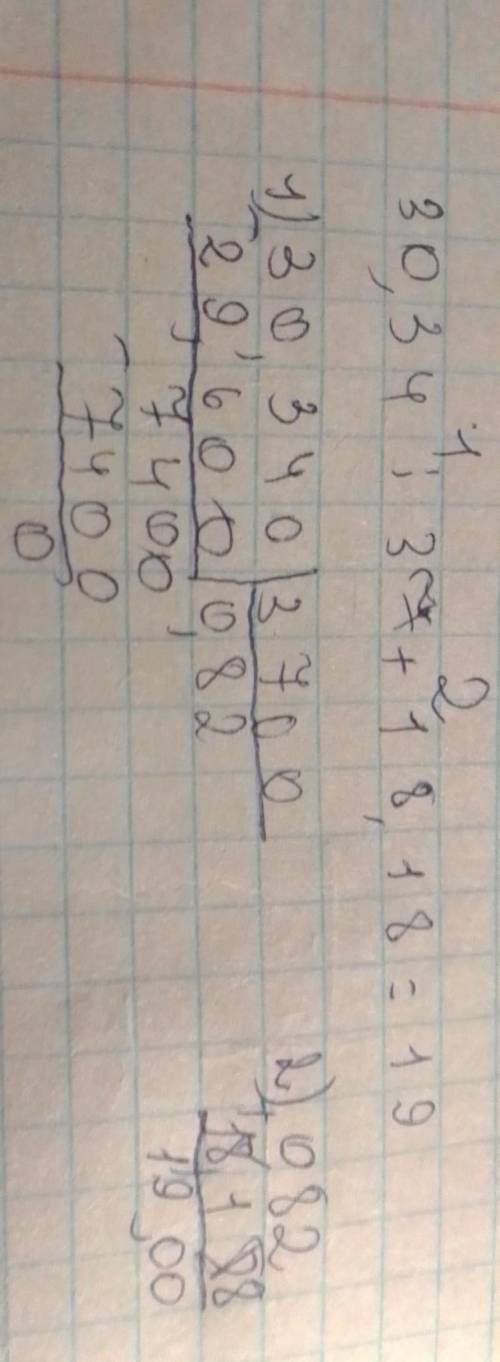 1 2
30,34 : 37 + 18,18 = 19
1) 30,340 | 3700
- 29,600 | 0,82
7400
- 7400
0
2) 0 82
+ 18 18
19,00